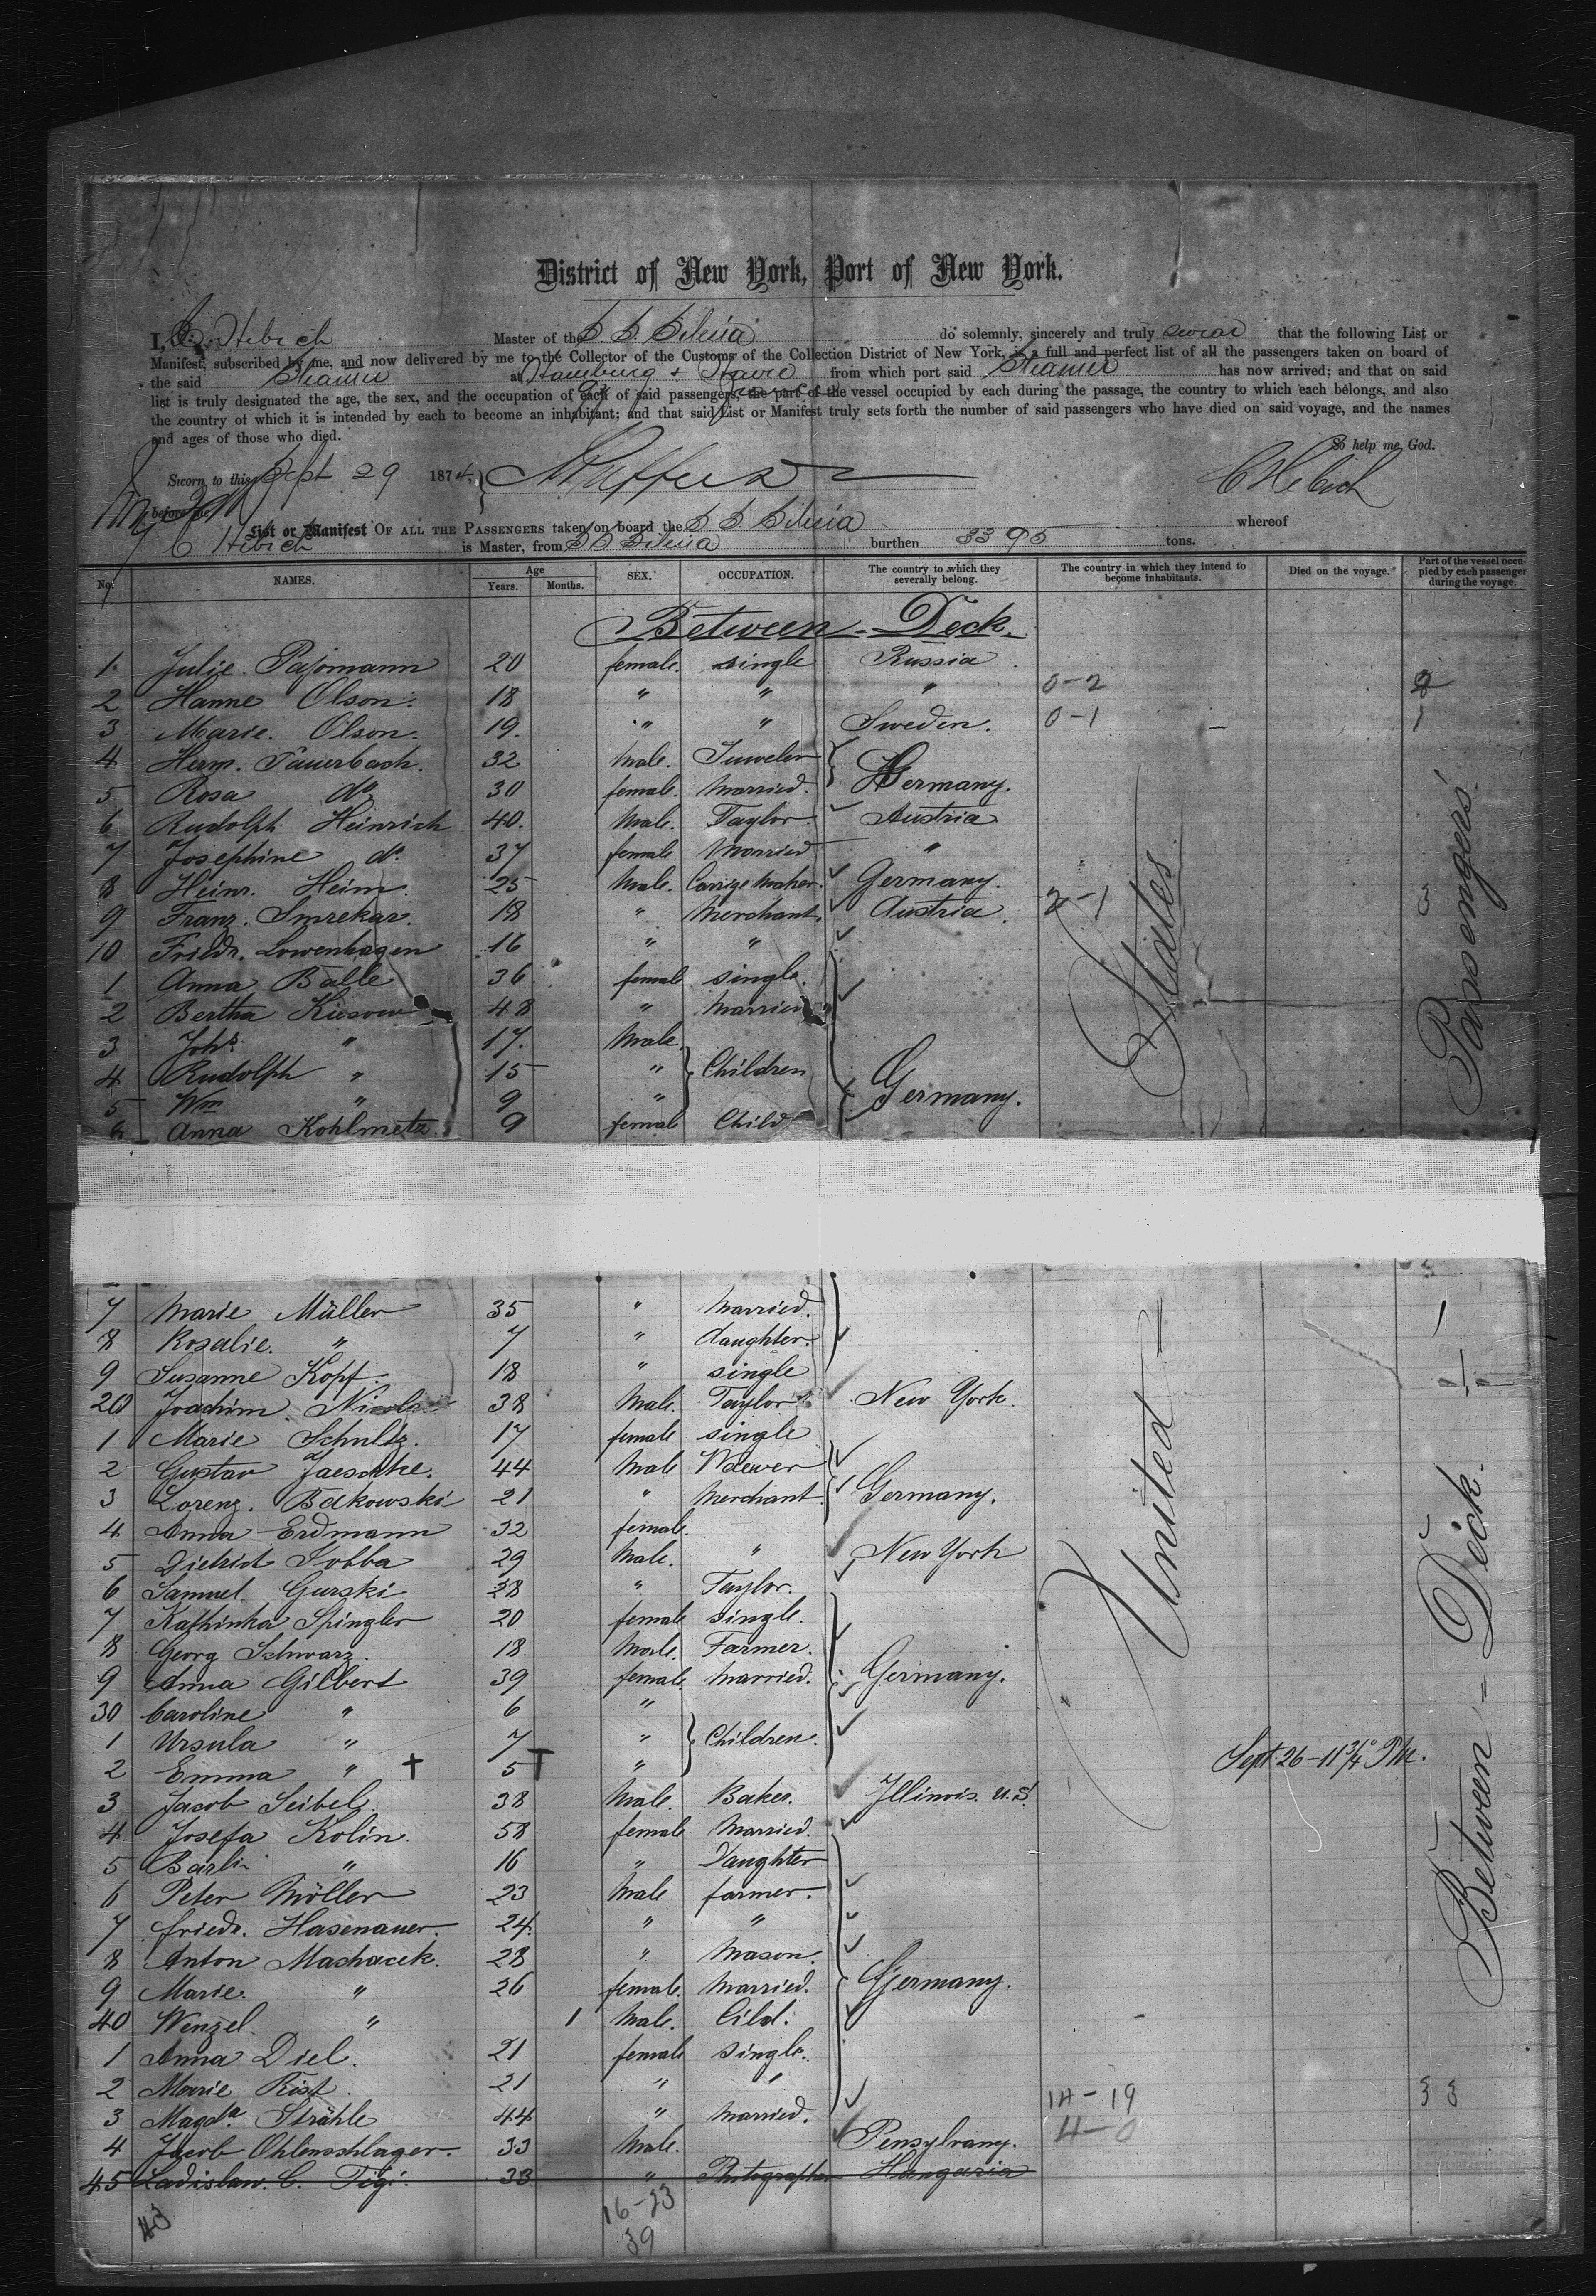 District of New York, Port of New York.
I, C. Hebich Master of the S S Silesia do solemnly, sincerely and truly swear that the following List or
Manifest, subscribed by me, and now delivered by me to the Collector of the Customs of the Collection District of New York, is a full and perfect list of all the passengers taken on board of
the said Steamer at Hamburg & Havre from which port said Steamer has now arrived; and that on said
list is truly designated the age, the sex, and the occupation of each of said passengers, the part of the vessel occupied by each during the passage, the country to which each belongs, and also
the country of which it is intended by each to become an inhabitant; and that said List or Manifest truly sets forth the number of said passengers who have died on said voyage, and the names
and ages of those who died.
So help me God.
Sworn to this Sept 29 1874. C Hebich
before me
List or Manifest OF ALL THE PASSENGERS taken on board the S S Silesia whereof
C Hebich is Master, from S S Silesia burthen 3395 tons.
No. NAMES. Age Years. Months. SEX. OCCUPATION. The country to which they severally belong. The country in which they intend to become inhabitants. Died on the voyage. Part of the vessel occupied by each passenger during the voyage.
Between-Deck.
1. Julie 20 female. single Russia
2 Hanne Olson. 18 " " " 0-2
3 Marie. Olson. 19. " " Sweden. 0-1 1
4 Herm. 32 Male. Juwelier
5 Rosa do 30 female. Married. Germany.
6 Rudolph Heinrich 40. Male. Taylor Austria
7 Josephine do. 37 female Married "
8 Heinr. Heim. 25 Male. Germany.
9 Franz. Smrekar. 18 " Merchant. Austria. 2-1 3
10 Friedr. Lowenhagen 16 " "
1 Anna Balle 36 female single.
2 Bertha Kiesow 48 " Married
3 Johs. " 17. Male.
4 Rudolph " 15 " Children
5 Wm " 9 " Germany.
6 Anna Kohlmetz. 9 female Child
7 Marie Müller 35 " Married. 1
8 Rosalie. " 7 " daughter.
9 Susanne Kopf. 18 " single
20 Joachim. 38 Male. Taylor New York.
1 Marie Schultz. 17 female single
2 Gustav Jaeschke. 44 Male Waever
3 Lorenz. Bakowski 21 " Merchant. Germany.
4 Anna Erdmann 32 female.
5 29 Male. " New York
6 Samuel. Gurski 28 " Taylor.
7 Kathinka Spingler 20 female single.
8 Georg Schwarz. 18. Male. Farmer.
9 Anna Gilbert 39 female. Married. Germany.
30 Caroline " 6 "
1 Ursula " 7 " Children.
2 Emma " † 5 † " Sept. 26-11¾ PM.
3 Jacob Seibel. 38 Male. Baker. Illinois. U.S.
4 Josefa Kolin. 58 female Married.
5 " 16 " Daughter
6 Peter Möller 23 Male farmer.
7 friedr. Hasenauer. 24. " "
8 Anton Machacek. 28 " Mason.
9 Marie. " 26 female. Married. Germany.
40 Wenzel. " 1 Male. Cild.
1 Anna Diel. 21 female single.
2 Marie Rist. 21 " "
3 Magda. Strähle 44 " Married. 14-19 3 3
4 Jacob Ohlenschlager. 33 Male. Pensylvany. 4-0
45 Ladislaw. C. Tigi. 33 " Photographer Hungaria
43
16-23
39
United States
Between-Deck. Passengers.